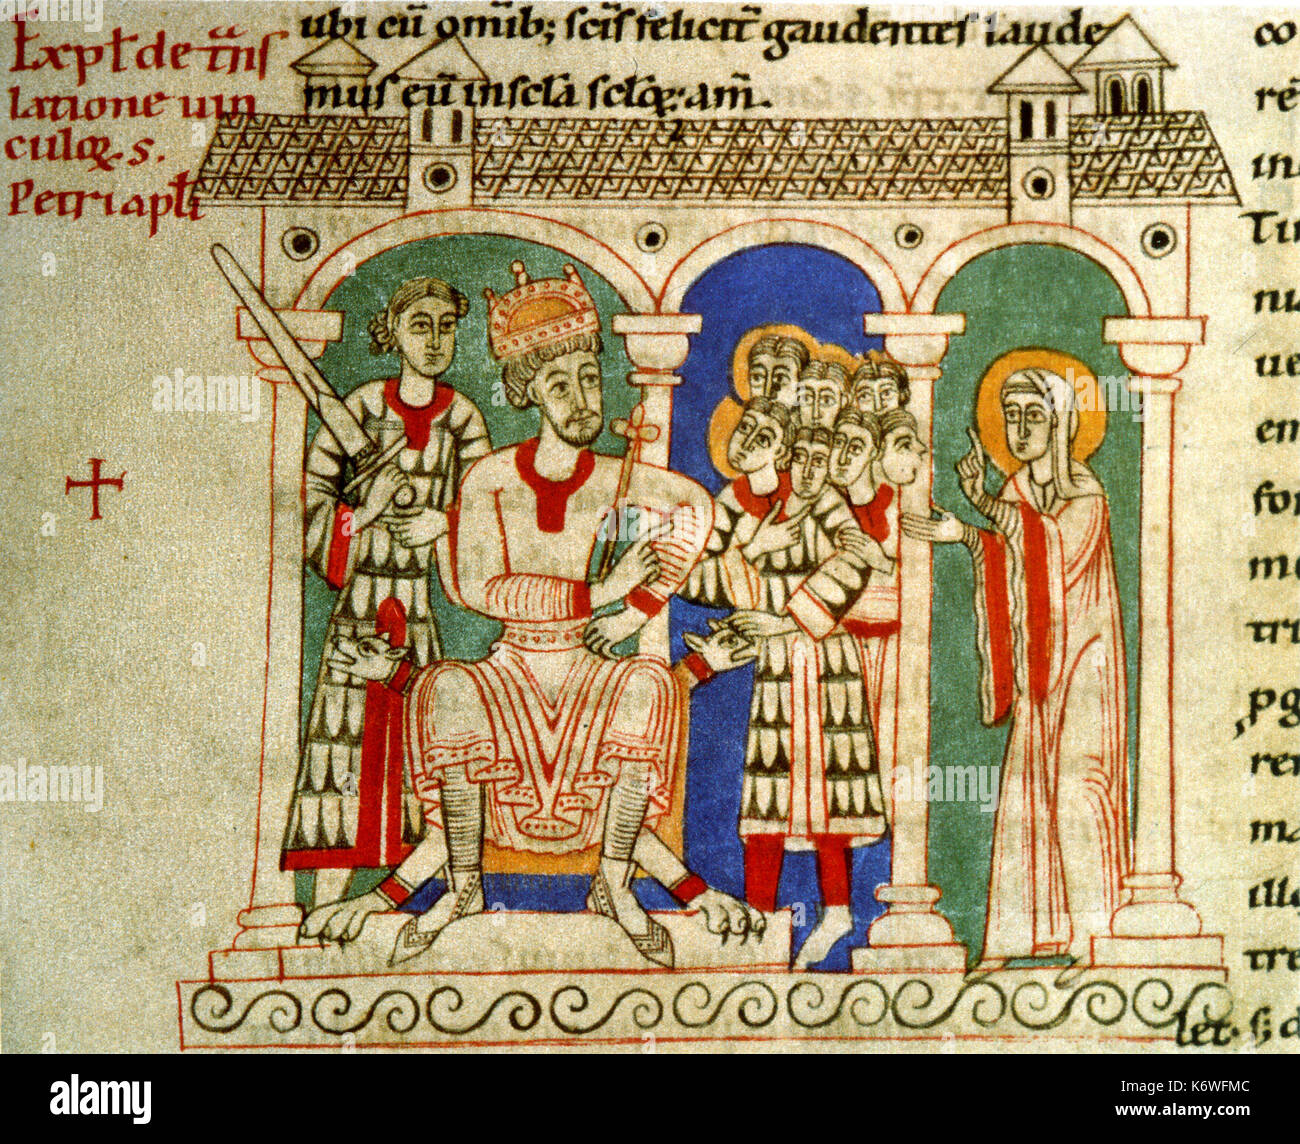 Expl̄ de trās
latione uin
culoꝝ. s.
Petri apl̄i
ubi cū om̄ib; sc̄is felicit̄ gaudentes laude
mus eū in sc̄la sc̄loꝝ· am̄.
co
rē
in
Tir
ue
em
for
tri
pg
rer
ma
illo
tre
let· s; d
alamy
alamy
Image ID: K6WFMC
www.alamy.com